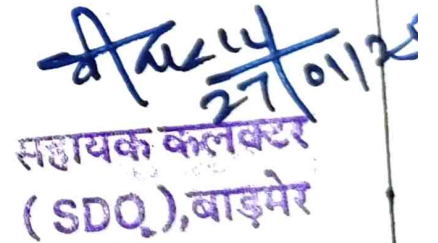 27/01/2
सहायक कलक्टर
(SDO),बाड़मेर